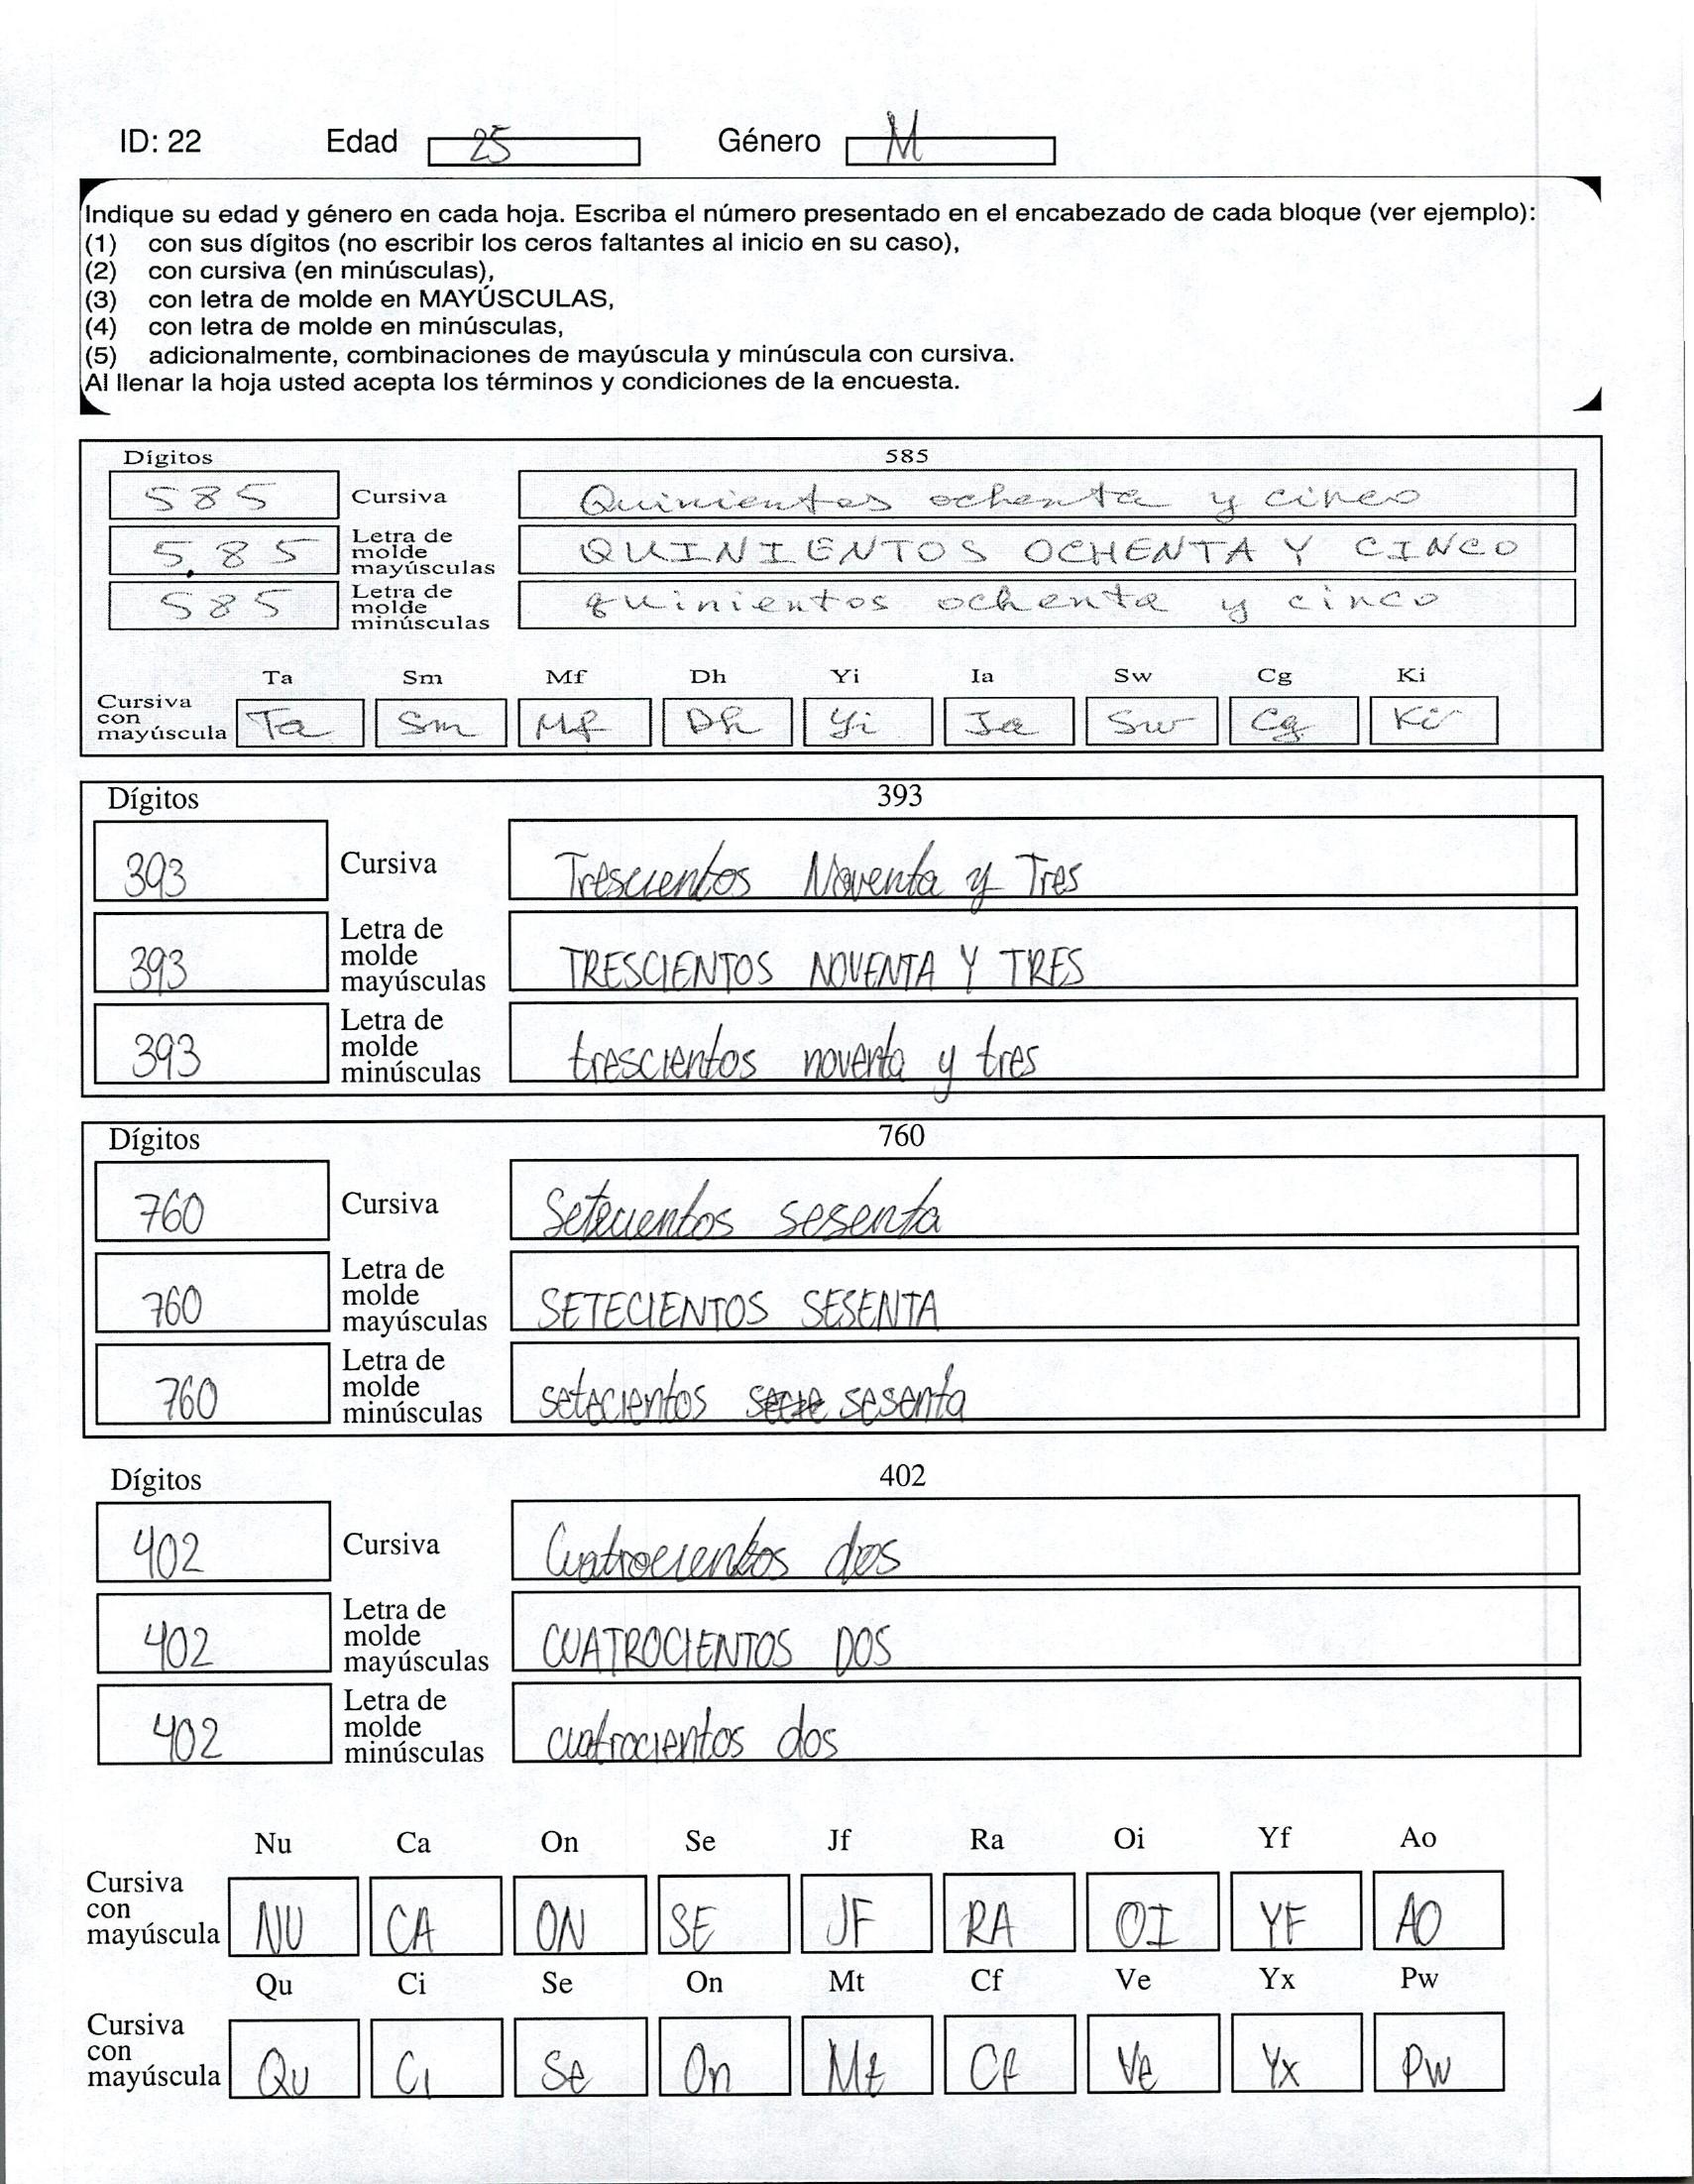 ID: 22 Edad 25 Género M
Indique su edad y género en cada hoja. Escriba el número presentado en el encabezado de cada bloque (ver ejemplo):
(1) con sus dígitos (no escribir los ceros faltantes al inicio en su caso),
(2) con cursiva (en minúsculas),
(3) con letra de molde en MAYÚSCULAS,
(4) con letra de molde en minúsculas,
(5) adicionalmente, combinaciones de mayúscula y minúscula con cursiva.
Al llenar la hoja usted acepta los términos y condiciones de la encuesta.
Dígitos 585
585 Cursiva Quinientos ochenta y cinco
5,85 Letra de molde mayúsculas QUINIENTOS OCHENTA Y CINCO
585 Letra de molde minúsculas quinientos ochenta y cinco
Ta Sm Mf Dh Yi Ia Sw Cg Ki
Cursiva con mayúscula Ta Sm Mf Dh Yi Ia Sw Cg Ki
Dígitos 393
393 Cursiva Trescientos Noventa y Tres
393 Letra de molde mayúsculas TRESCIENTOS NOVENTA Y TRES
393 Letra de molde minúsculas trescientos noventa y tres
Dígitos 760
760 Cursiva Setecientos sesenta
760 Letra de molde mayúsculas SETECIENTOS SESENTA
760 Letra de molde minúsculas setecientos sesenta
Dígitos 402
402 Cursiva Cuatrocientos dos
402 Letra de molde mayúsculas CUATROCIENTOS DOS
402 Letra de molde minúsculas cuatrocientos dos
Nu Ca On Se Jf Ra Oi Yf Ao
Cursiva con mayúscula NU CA ON SE JF RA OI YF AO
Qu Ci Se On Mt Cf Ve Yx Pw
Cursiva con mayúscula Qu Ci Se On Mt Cf Ve Yx Pw